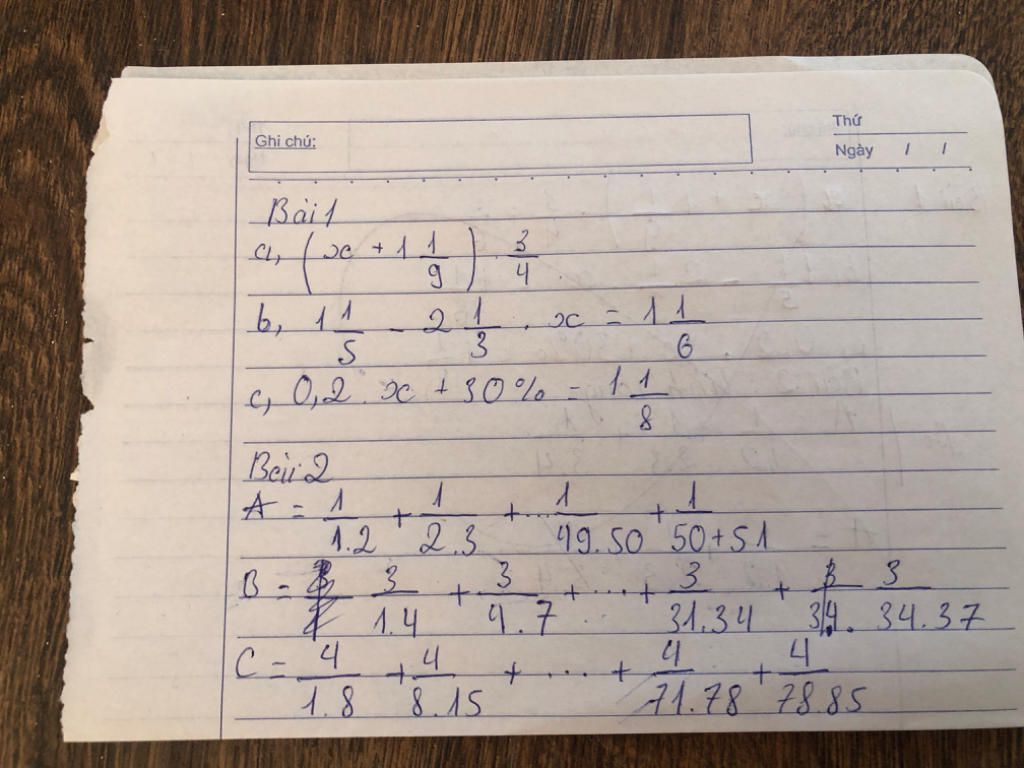 Ghi chú:
Thứ
Ngày / /
Bài 1
a, (x + 1 1/9) . 3/4
b, 1 1/5 - 2 1/3 . x = 1 1/6
c, 0,2 . x + 30% = 1 1/8
Bài 2
A = 1/1.2 + 1/2.3 + ... 1/49.50 + 1/50+51
B = 3/1.4 + 3/4.7 + ... + 3/31.34 + 3/34.37
C = 4/1.8 + 4/8.15 + .... + 4/71.78 + 4/78.85